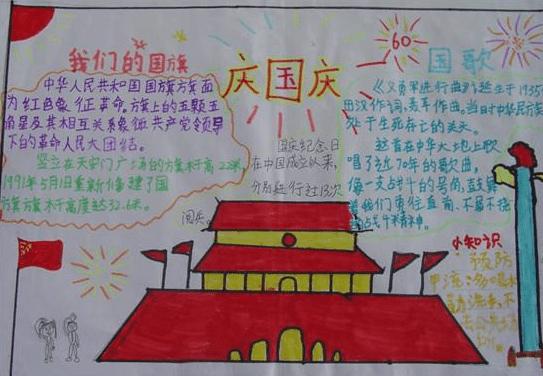 我们的国旗
中华人民共和国国旗旗面
为红色象征革命,旗上的五颗五
角星及其相互关系象征共产党领导
下的革命人民大团结。
竖立在天安门广场的方旗杆高22米,
1991年5月1日重新修建了国
旗方旗杆高度达32.6米。
庆国庆
国庆纪念日
在中国成立以来,
分别进行过13次
阅兵。
60
国歌
《义勇军进行曲》诞生于1935
田汉作词,聂耳作曲,当时中华民族
处于生死存亡的关头。
这首在中华大地上歌
唱了近70年的歌曲,
像一支战斗的号角,鼓舞
着我们勇往直前、不屈不挠
战斗精神。
小知识
预防
甲流:多喝水
不
去公共场